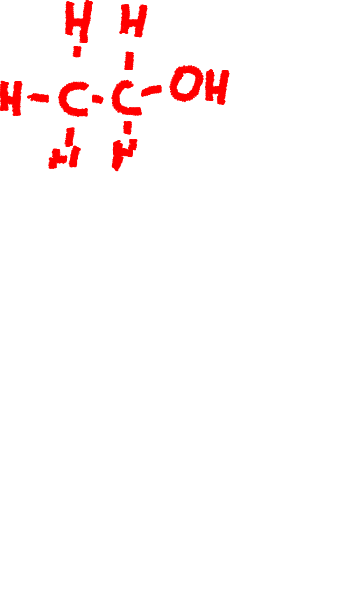 H H
H - C - C - OH
H H